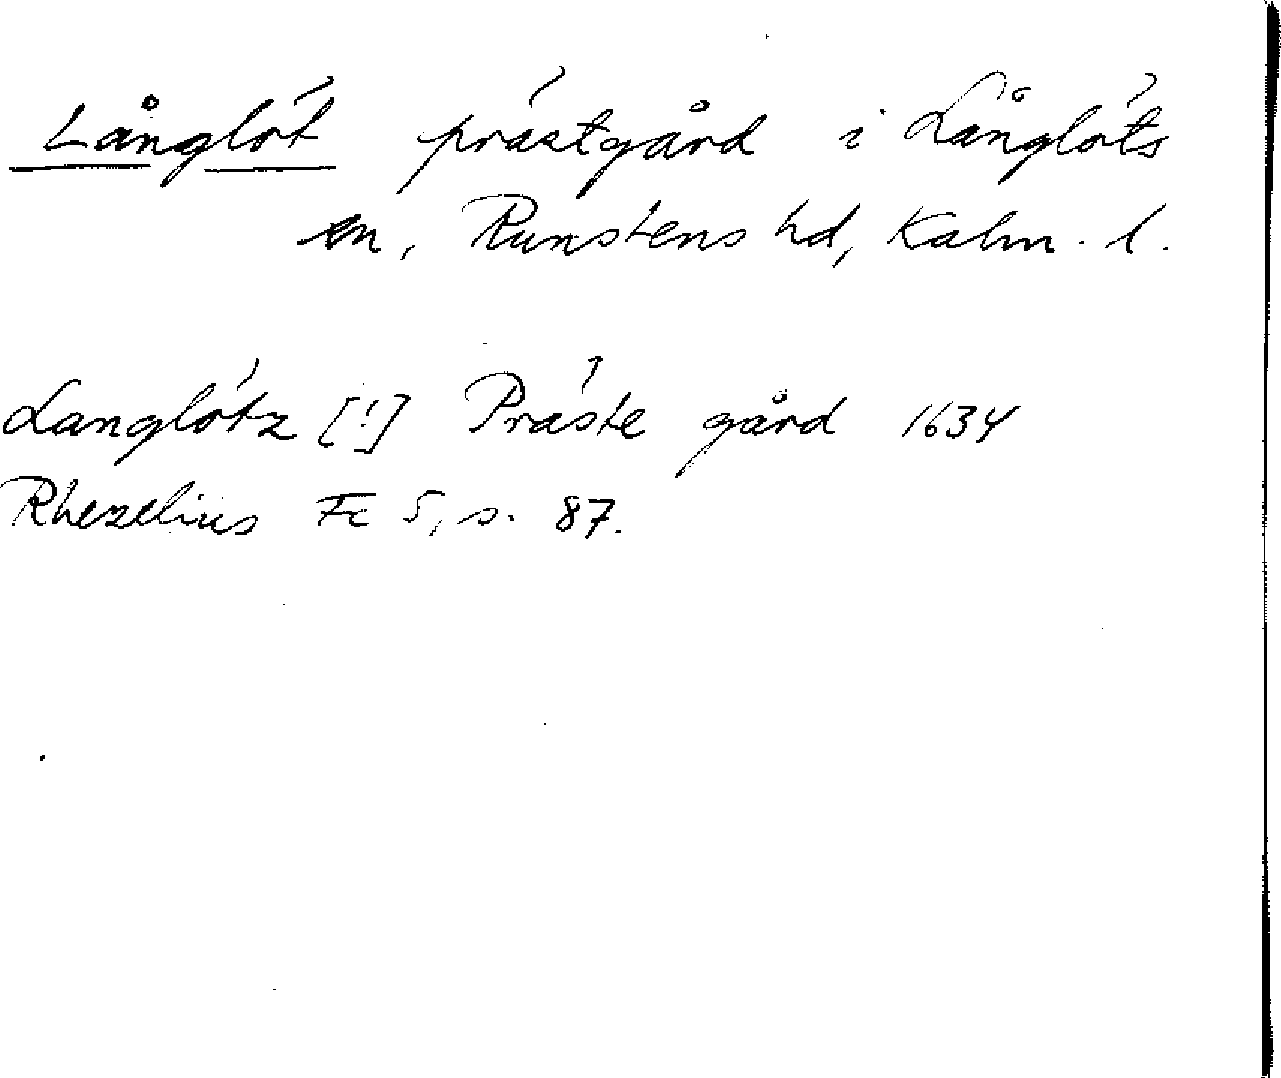 Långlöt prästgård i Långlöts
sn, Runstens hd, Kalm. l.
Langlötz [!] Präste gård 1634
Rhezelius Fc 5, s. 87.